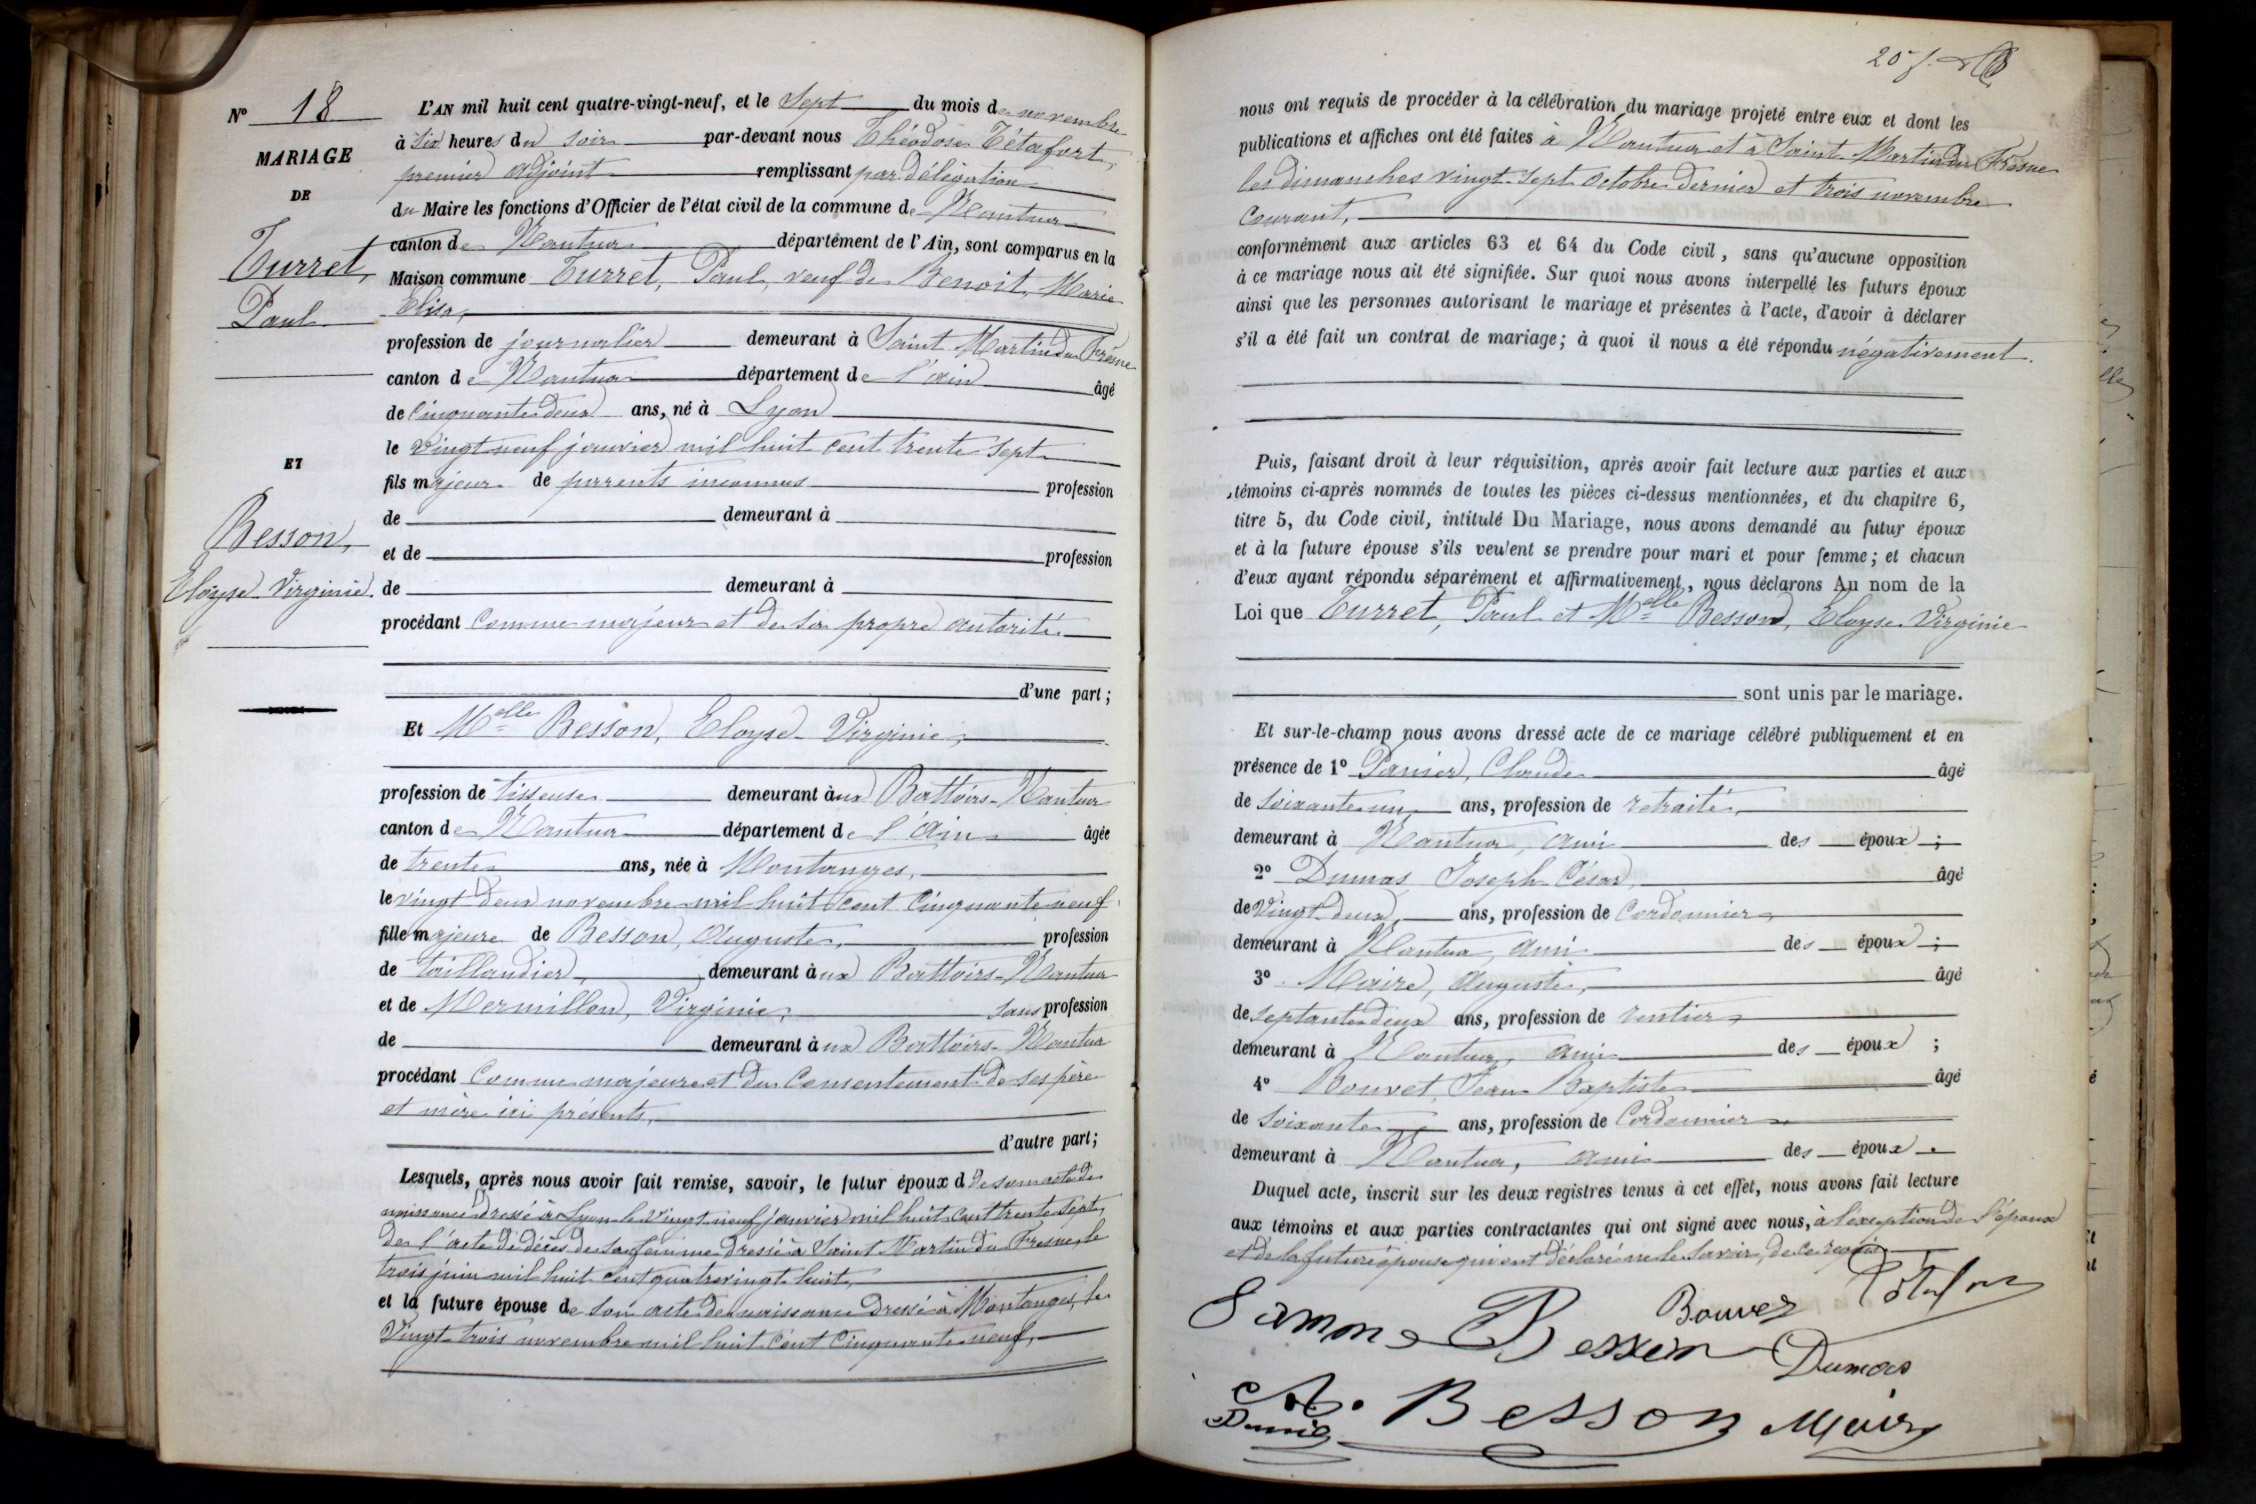 N° 18
MARIAGE
DE
Turret,
Paul
ET
Besson,
Eloyse Virginie.
L'AN mil huit cent quatre-vingt-neuf, et le Sept du mois de novembre
à Six heures du soir par-devant nous Théodose Tétafort,
premier adjoint remplissant par délégation
du Maire les fonctions d'Officier de l'état civil de la commune de Nantua
canton de Nantua département de l'Ain, sont comparus en la
Maison commune Turret, Paul, veuf de Benoit, Marie
Elisa,
profession de journalier demeurant à Saint Martin du Fresne
canton de Nantua département de l'ain âgé
de Cinquante deux ans, né à Lyon
le vingt neuf janvier mil huit cent trente sept
fils majeur de parents inconnus profession
de demeurant à
et de profession
de demeurant à
procédant Comme majeur et de sa propre autorité.
d'une part;
Et Melle Besson, Eloyse Virginie,
profession de tisseuse demeurant aux Battoirs-Nantua
canton de Nantua département de l'Ain âgée
de trente ans, née à Montanges,
le vingt deux novembre mil huit cent cinquante neuf
fille majeure de Besson, Auguste, profession
de taillandier, demeurant aux Battoirs-Nantua
et de Mermillon, Virginie, sans profession
de demeurant aux Battoirs-Nantua
procédant Comme majeure et du Consentement de ses père
et mère ici présents,
d'autre part;
Lesquels, après nous avoir fait remise, savoir, le futur époux d de son acte de
naissance dressé à Lyon le vingt neuf janvier mil huit cent trente sept,
de l'acte de décès de sa femme dressé à Saint Martin du Fresne le
trois juin mil huit cent quatre vingt huit,
et la future épouse de son acte de naissance dressé à Montanges, le
Vingt trois novembre mil huit cent cinquante neuf,
nous ont requis de procéder à la célébration du mariage projeté entre eux et dont les
publications et affiches ont été faites à Nantua et à Saint Martin du Fresne
les dimanches vingt-sept octobre dernier et trois novembre
courant,
conformément aux articles 63 et 64 du Code civil, sans qu'aucune opposition
à ce mariage nous ait été signifiée. Sur quoi nous avons interpellé les futurs époux
ainsi que les personnes autorisant le mariage et présentes à l'acte, d'avoir à déclarer
s'il a été fait un contrat de mariage; à quoi il nous a été répondu négativement.
Puis, faisant droit à leur réquisition, après avoir fait lecture aux parties et aux
témoins ci-après nommés de toutes les pièces ci-dessus mentionnées, et du chapitre 6,
titre 5, du Code civil, intitulé Du Mariage, nous avons demandé au futur époux
et à la future épouse s'ils veulent se prendre pour mari et pour femme; et chacun
d'eux ayant répondu séparément et affirmativement, nous déclarons Au nom de la
Loi que Turret, Paul et Melle Besson, Eloyse Virginie
sont unis par le mariage.
Et sur-le-champ nous avons dressé acte de ce mariage célébré publiquement et en
présence de 1° Panier, Claude âgé
de soixante un ans, profession de retraité,
demeurant à Nantua, ami des époux;
2° Dumas Joseph César, âgé
de Vingt-deux, ans, profession de Cordonnier
demeurant à Nantua, ami des époux;
3° Maire, Auguste, âgé
de septante deux ans, profession de rentier,
demeurant à Nantua, ami des époux;
4° Bouvet, Jean Baptiste âgé
de soixante ans, profession de Cordonnier
demeurant à Nantua, ami des époux.
Duquel acte, inscrit sur les deux registres tenus à cet effet, nous avons fait lecture
aux témoins et aux parties contractantes qui ont signé avec nous, à l'exception de l'époux
et de la future épouse qui ont déclaré ne le savoir, de ce requis
Bouvet
Besson
Dumas
A. Besson Maire